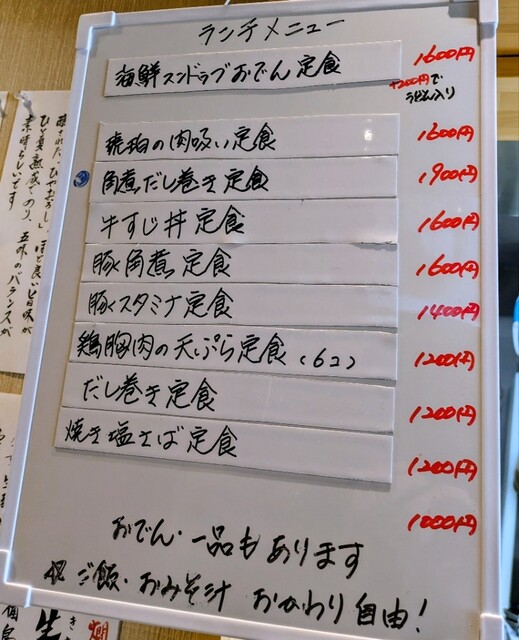 ランチメニュー
海鮮スンドゥブおでん定食 1600円
+200円で
うどん入り
琥珀の肉吸い定食 1600円
角煮だし巻き定食 1900円
牛すじ丼定食 1600円
豚角煮定食 1600円
豚スタミナ定食 1400円
鶏胸肉の天ぷら定食(6コ) 1200円
だし巻き定食 1200円
焼き塩さば定食 1200円
1000円
おでん・一品もあります
ご飯・おみそ汁 おかわり自由!
ほど良い旨味が
ひと夏熟成
のり、五味のバランスが
素晴らしいです